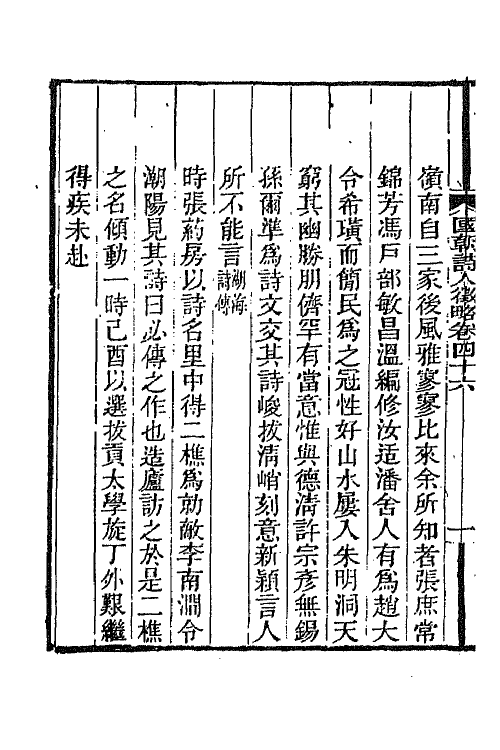 國朝詩人徵略卷四十六
一
嶺南自三家後風雅寥寥比來余所知者張庶常
錦芳馮戶部敏昌溫編修汝适潘舍人有爲趙大
令希璜而簡民爲之冠性好山水屢入朱明洞天
窮其幽勝朋儕罕有當意惟與德淸許宗彥無錫
孫爾準爲詩文交其詩峻拔淸峭刻意新穎言人
所不能言湖海詩傳
時張葯房以詩名里中得二樵爲勍敵李南澗令
潮陽見其詩曰必傳之作也造廬訪之於是二樵
之名傾動一時己酉以選拔貢太學旋丁外艱繼
得疾未赴